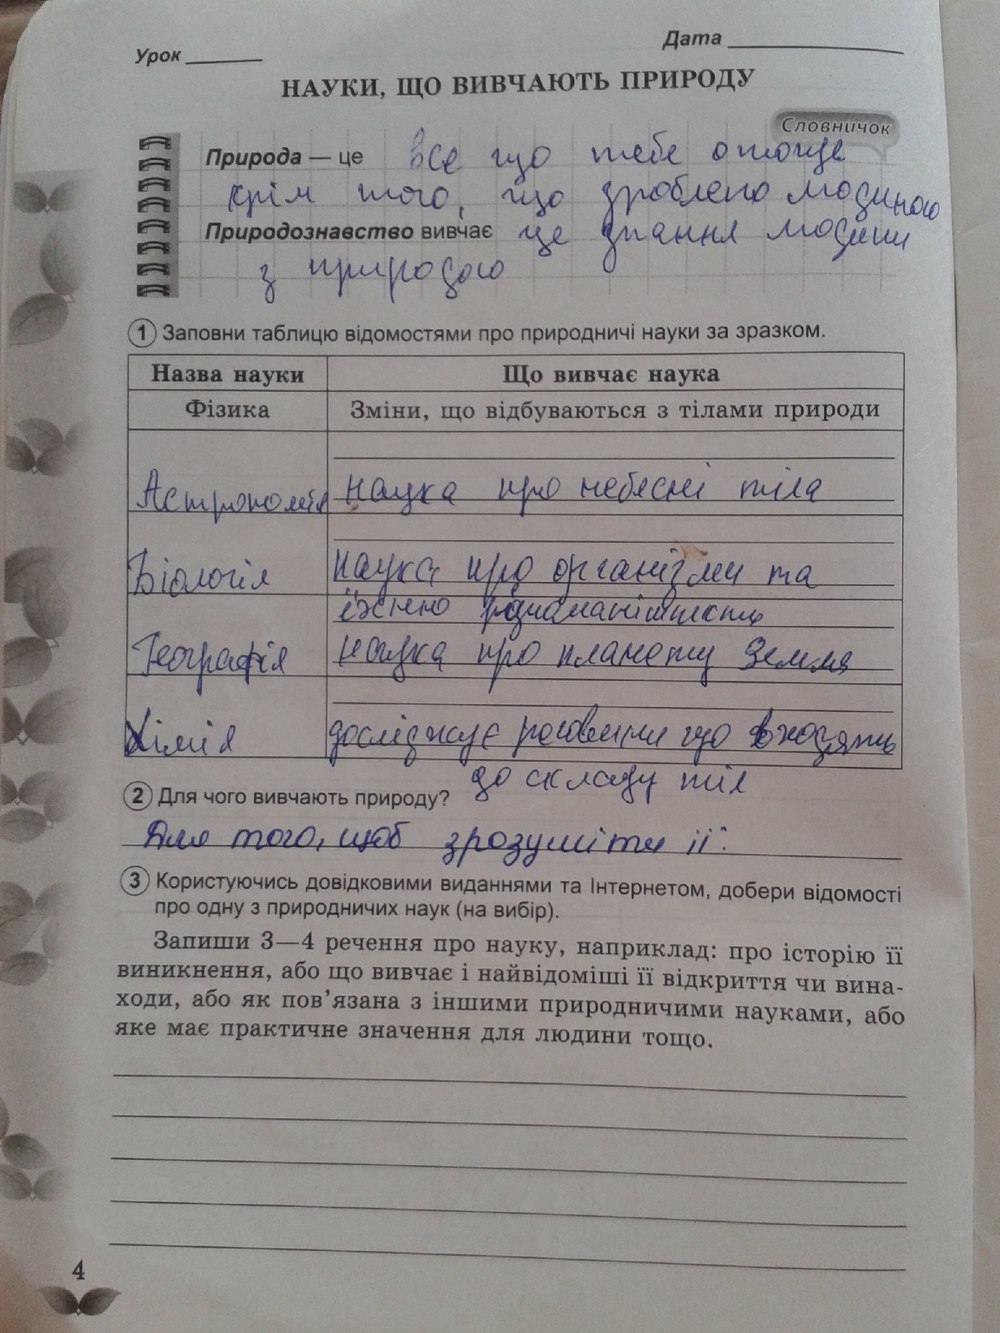 Урок
Дата
НАУКИ, ЩО ВИВЧАЮТЬ ПРИРОДУ
Словничок
Природа — це все що тебе оточує
крім того, що зроблено людиною
Природознавство вивчає це знання людини
з природою
1 Заповни таблицю відомостями про природничі науки за зразком.
Назва науки Що вивчає наука
Фізика Зміни, що відбуваються з тілами природи
Астрономія наука про небесні тіла
Біологія наука про організми та
їхню
Географія наука про планету Земля
Хімія досліджує речовини що входять
до складу тіл
2 Для чого вивчають природу?
Для того, щоб зрозуміти її.
3 Користуючись довідковими виданнями та Інтернетом, добери відомості
про одну з природничих наук (на вибір).
Запиши 3—4 речення про науку, наприклад: про історію її
виникнення, або що вивчає і найвідоміші її відкриття чи вина-
ходи, або як пов’язана з іншими природничими науками, або
яке має практичне значення для людини тощо.
4